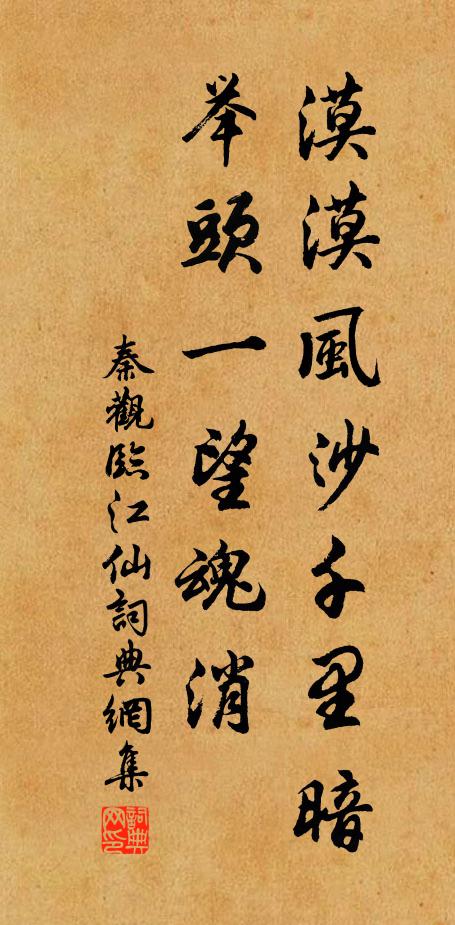 漠漠風沙千里暗
举頭一望魂消
秦觀臨江仙詞典網集
詞典网印